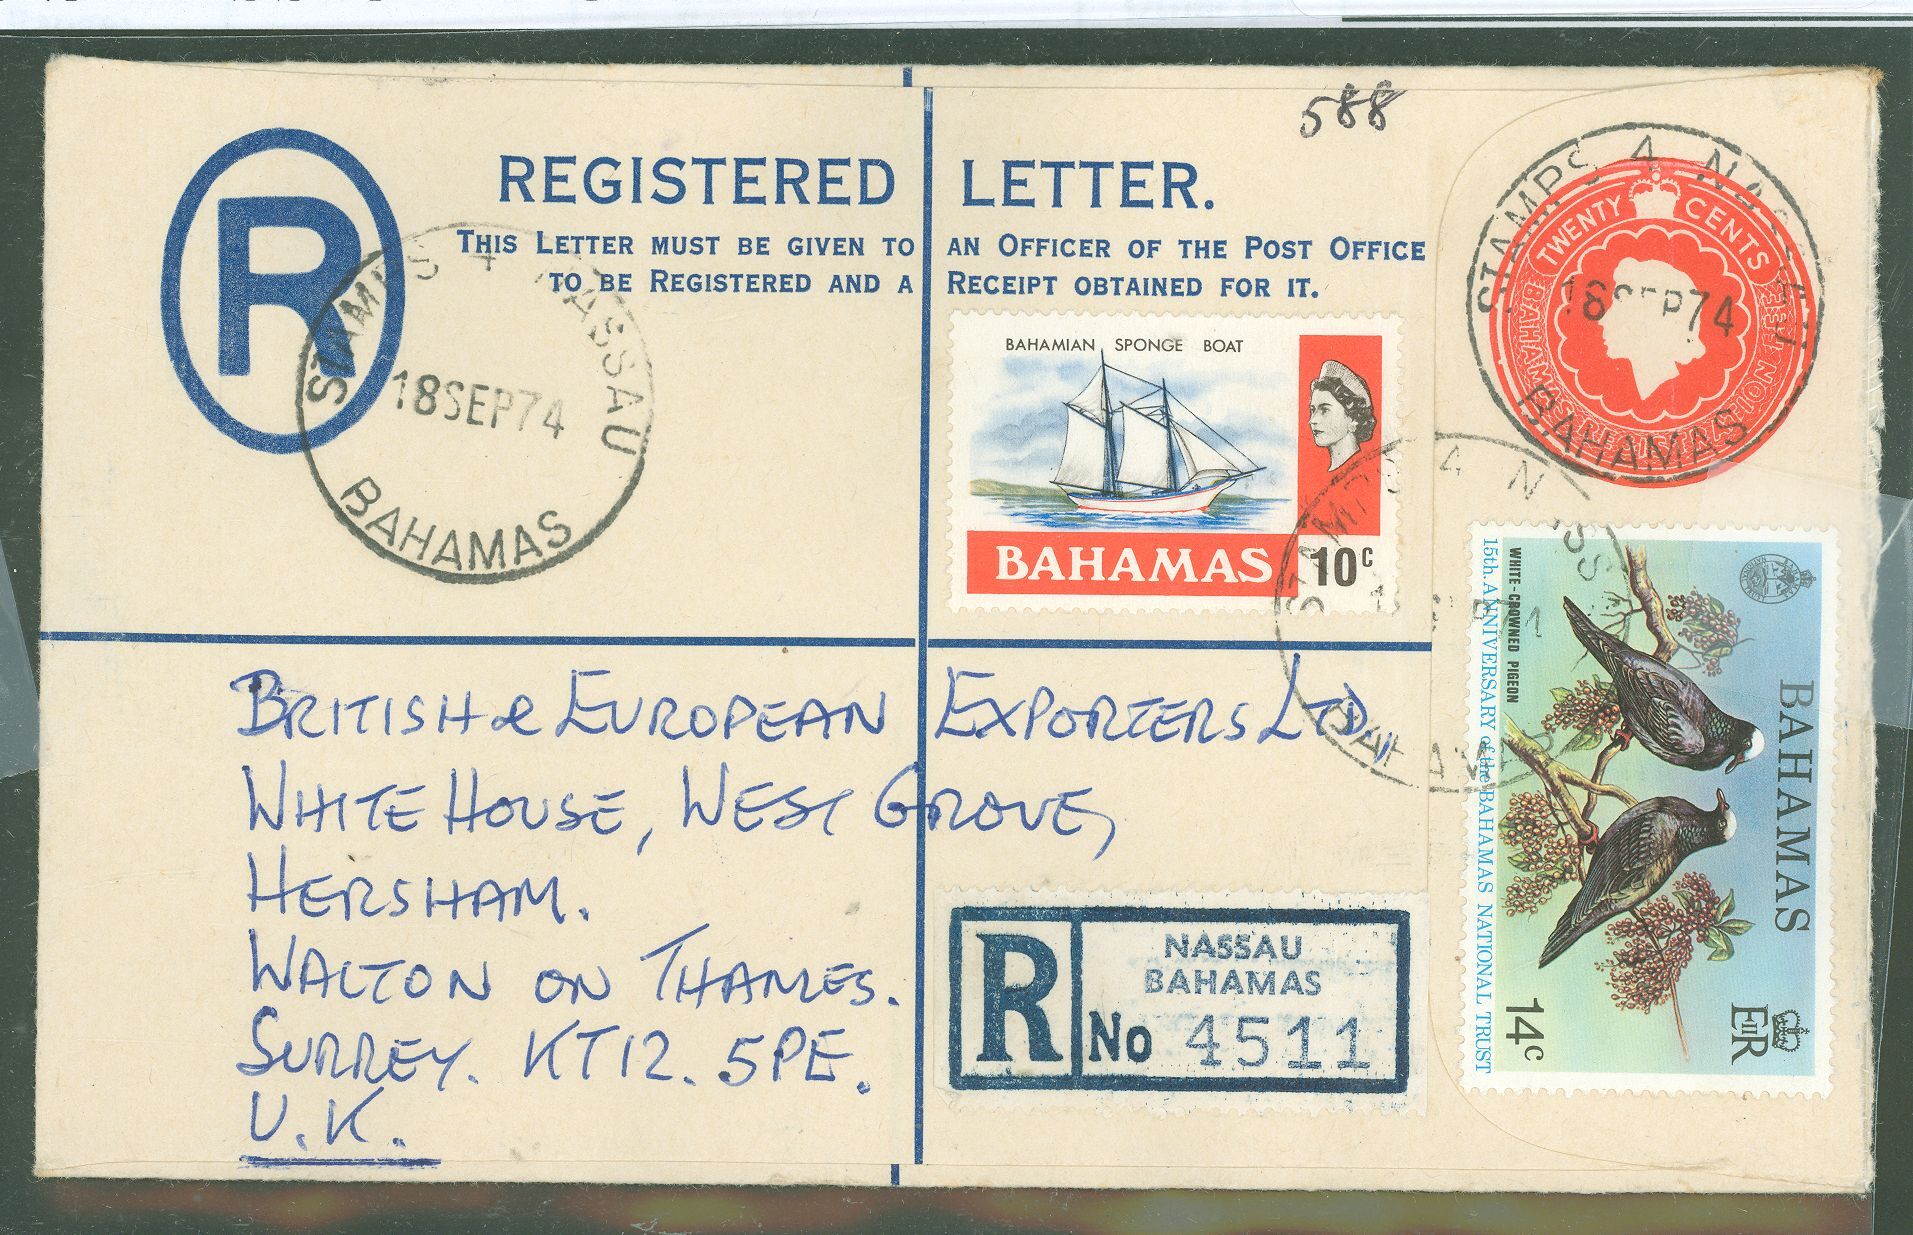 588
REGISTERED LETTER.
THIS LETTER MUST BE GIVEN TO AN OFFICER OF THE POST OFFICE
TO BE REGISTERED AND A RECEIPT OBTAINED FOR IT.
R
STAMPS 4 NASSAU
18SEP74
BAHAMAS
STAMPS 4 NASSAU
SEP74
BAHAMAS
TWENTY CENTS
BAHAMAS
REGISTRATION FEE
BAHAMIAN SPONGE BOAT
BAHAMAS 10c
BAHAMAS
EIIR
WHITE-CROWNED PIGEON
15th. ANNIVERSARY of the BAHAMAS NATIONAL TRUST
14c
BRITISH & EUROPEAN EXPORTERS LTD.,
WHITE HOUSE, WEST GROVE,
HERSHAM.
WALTON ON THAMES.
SURREY. KT12. 5PE.
U.K.
R
NASSAU
BAHAMAS
No 4511